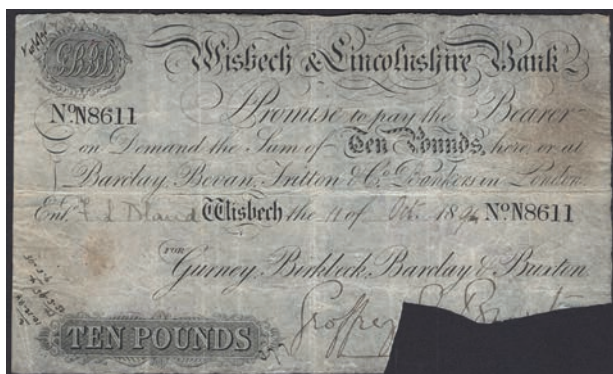 Wisbech & Lincolnshire Bank
No N8611
I Promise to pay the Bearer
on Demand the Sum of Ten Pounds, here or at
Barclay, Bevan, Tritton & Co. Bankers in London.
Ent. Wisbech the of Oct. 189 No N8611
FOR
Gurney, Birkbeck, Barclay & Buxton
Geoffrey
TEN POUNDS